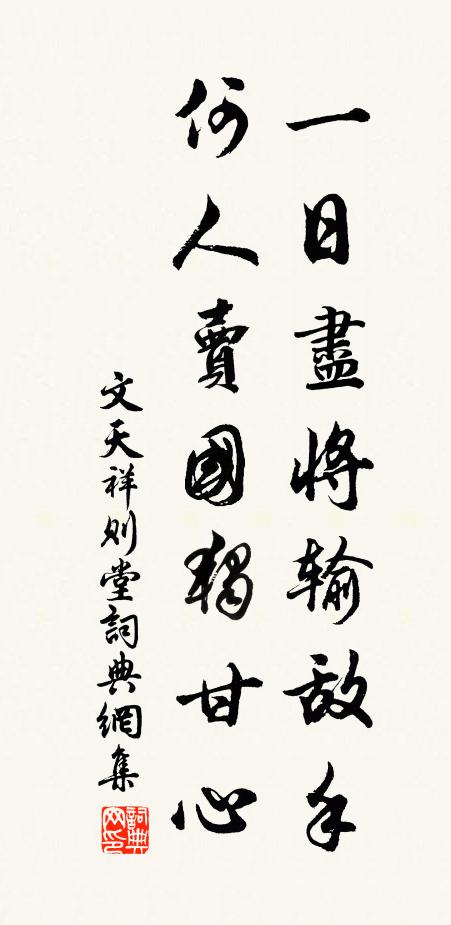 一日盡將輸敵手
何人賣國獨甘心
文天祥則堂詞典網集
詞典网印